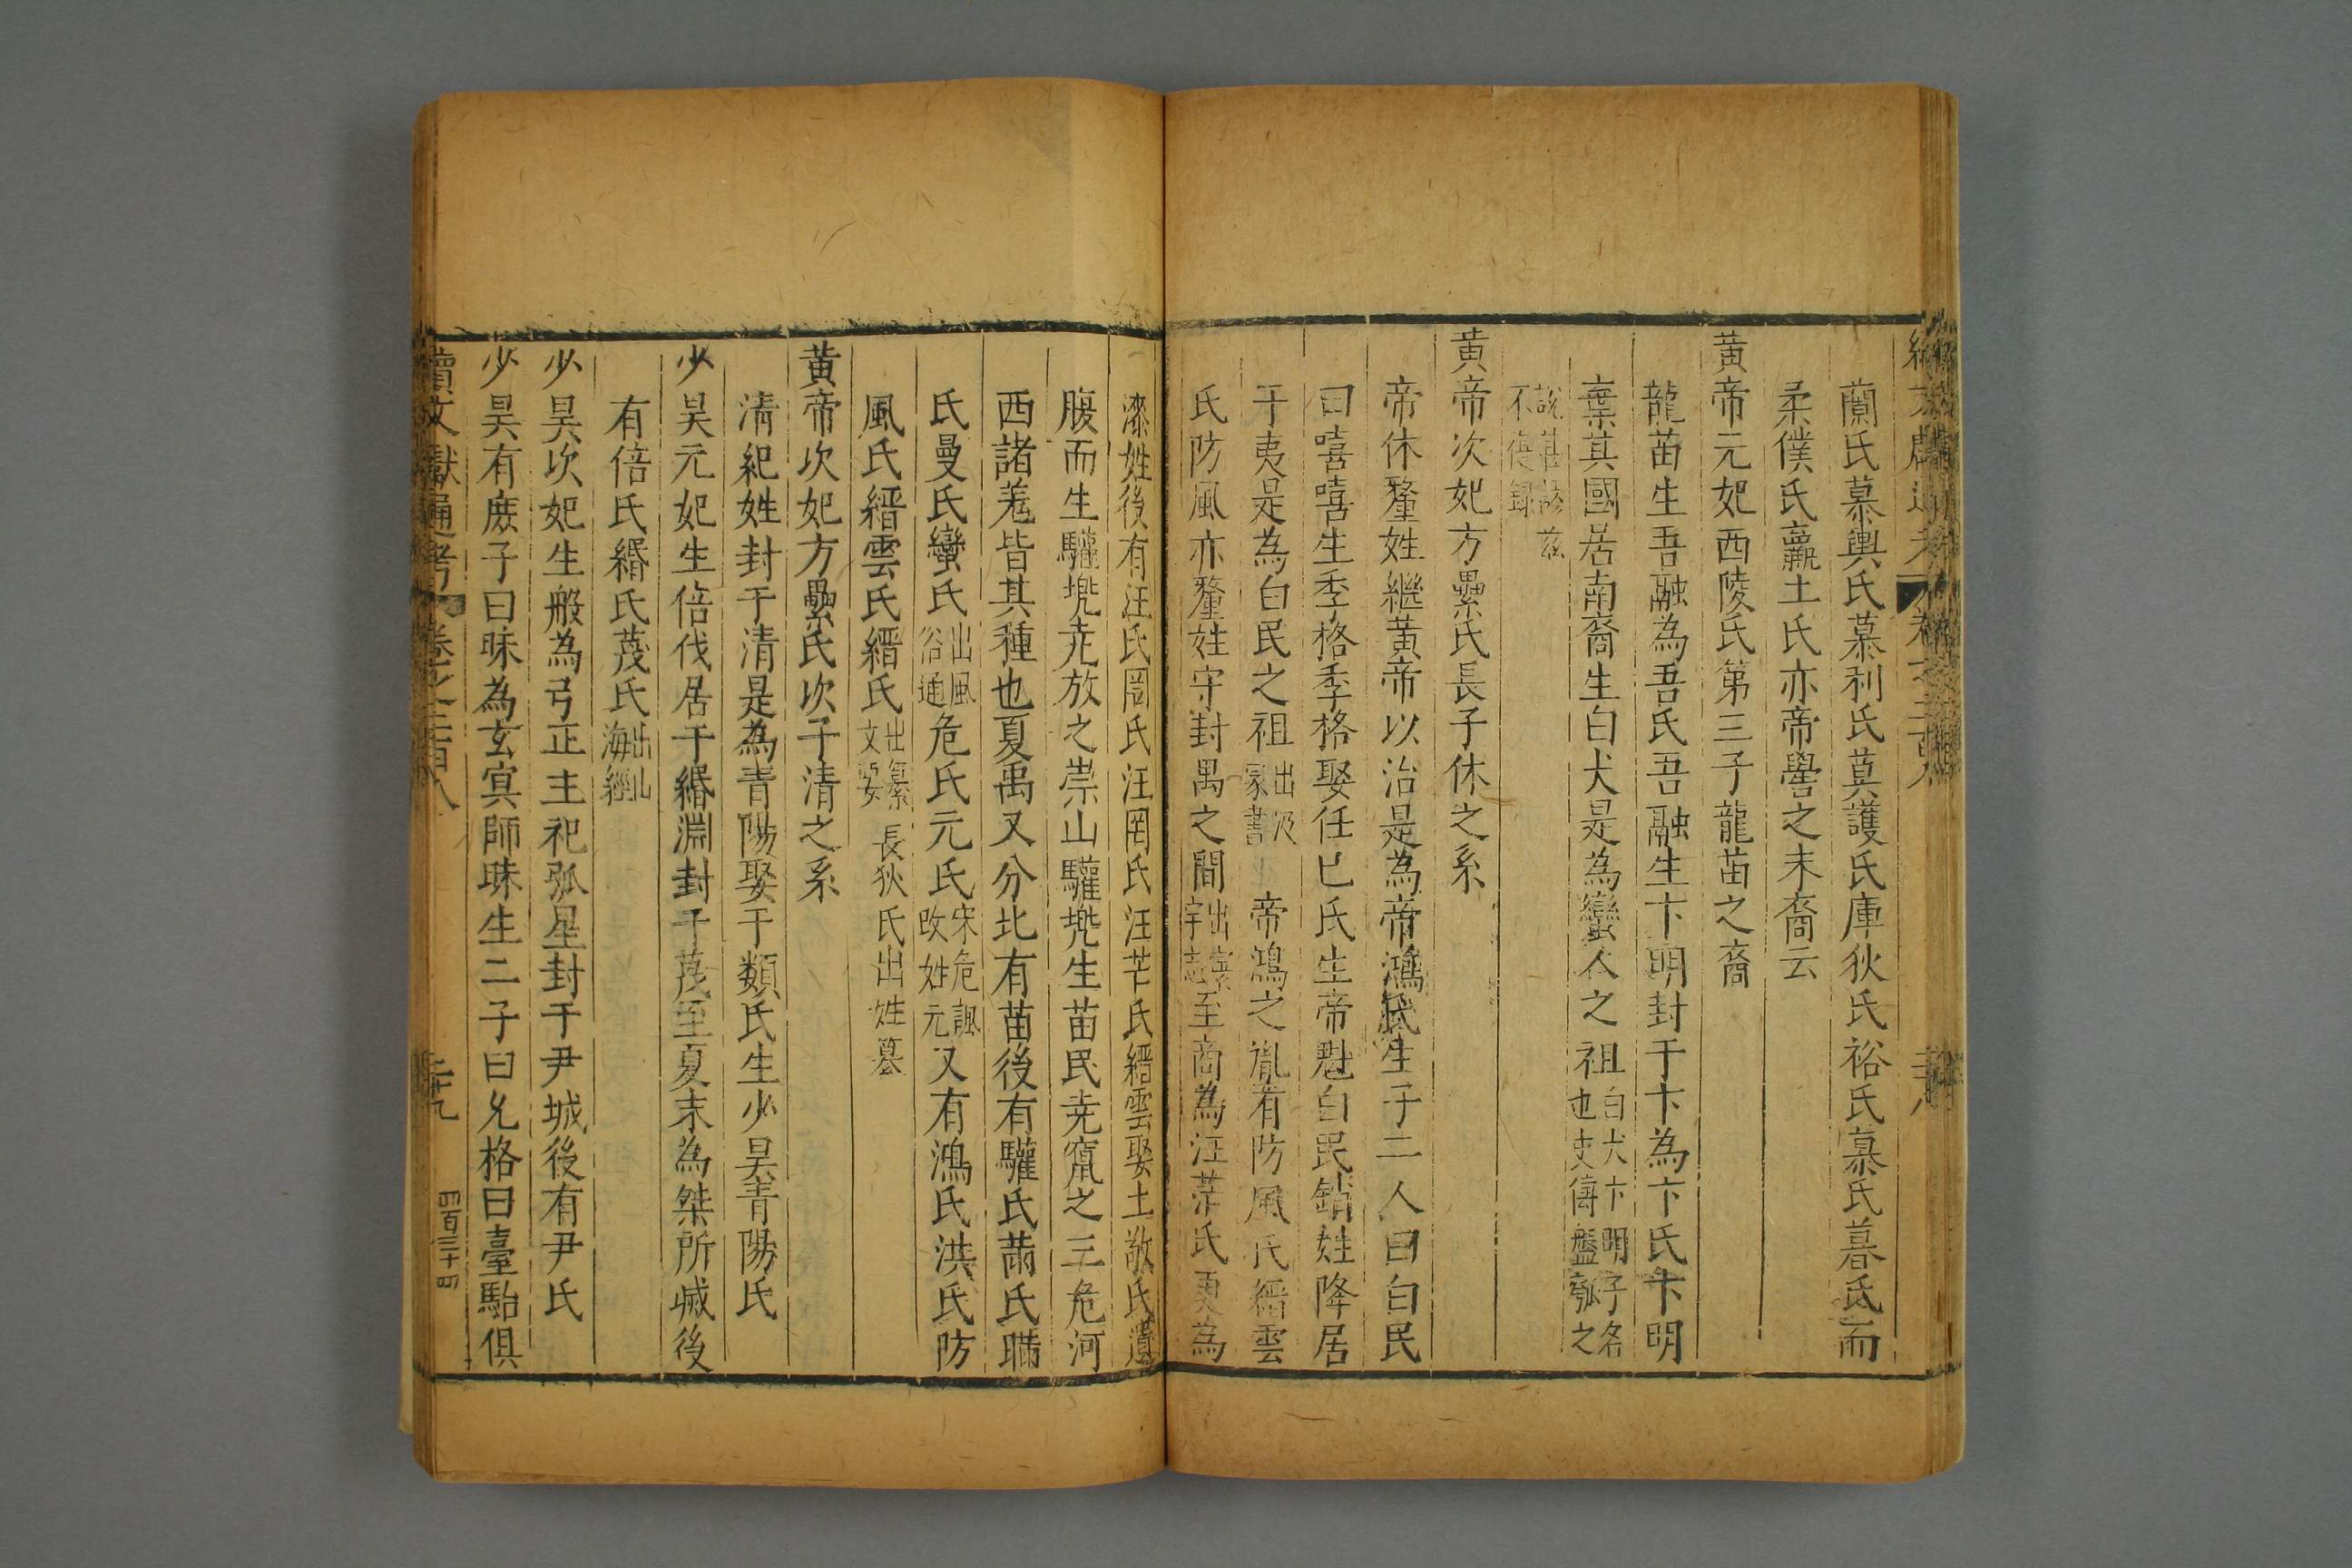 蘭氏慕輿氏慕利氏莫護氏庫狄氏裕氏慕氏暮氏而
柔僕氏嬴土氏亦帝嚳之末裔云
黃帝元妃西陵氏第三子龍苗之裔
龍苗生吾融為吾氏吾融生卞明封于卞為卞氏卞明
棄其國居南裔生白犬是為蠻人之祖白犬卞明子名也史傳盤瓠之
說甚謬茲不復錄
黃帝次妃方纍氏長子休之系
帝休釐姓繼黃帝以治是為帝鴻氏生子二人曰白民
曰嘻嘻生季格季格娶任巳氏生帝魁白民銷姓降居
于夷是為白民之祖出汲冢書帝鴻之胤有防風氏縉雲
氏防風亦釐姓守封禺之間出寰宇志至商為汪茫氏更為
漆姓後有汪氏罔氏汪罔氏汪芒氏縉雲娶土敬氏遺
腹而生驩兠尭放之崇山驩兠生苗民尭竄之三危河
西諸羌皆其種也夏禹又分北有苗後有驩氏
氏曼氏蠻氏出風俗通危氏元氏宋危諷改姓元又有鴻氏洪氏防
風氏縉雲氏縉氏出纂文要長狄氏出姓纂
黃帝次妃方纍氏次子清之系
清紀姓封于清是為青陽娶于類氏生少昊青陽氏
少昊元妃生倍伐居于緡淵封于茂至夏末為桀所滅後
有倍氏緡氏茂氏出山海經
少昊次妃生般為弓正主祀弧星封于尹城後有尹氏
少昊有庶子曰昧為玄冥師昧生二子曰允格曰臺駘俱
續文獻通考 卷之二百八 四百三十四